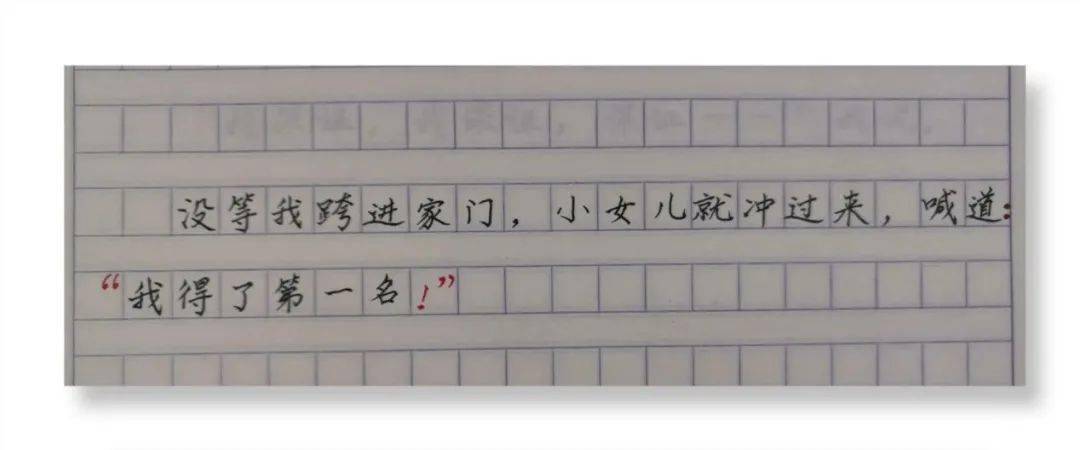 没等我跨进家门，小女儿就冲过来，喊道：
“我得了第一名！”